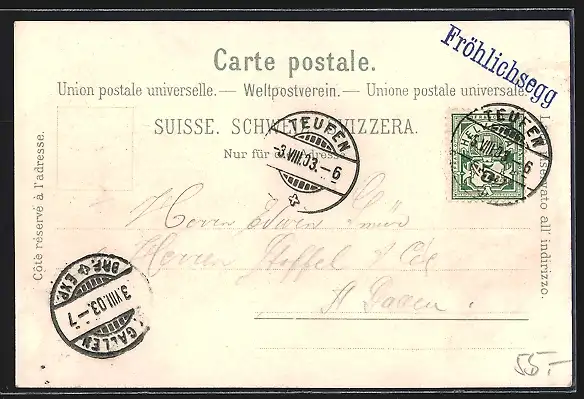 Carte postale.
Fröhlichsegg
Union postale universelle. — Weltpostverein. — Unione postale universale.
SUISSE. SCHWEIZ. SVIZZERA.
Nur für die Adresse.
Côté réservé à l'adresse.
Lato riservato all' indirizzo.
TEUFEN
-3.VIII.03.-6
TEUFEN
-3.VIII.03.-6
HELVETIA
Herrn Edwin
Herren Steffel & Cie
St Gallen.
BRF. EXP.
3.VIII.03.-7
GALLEN
55.-